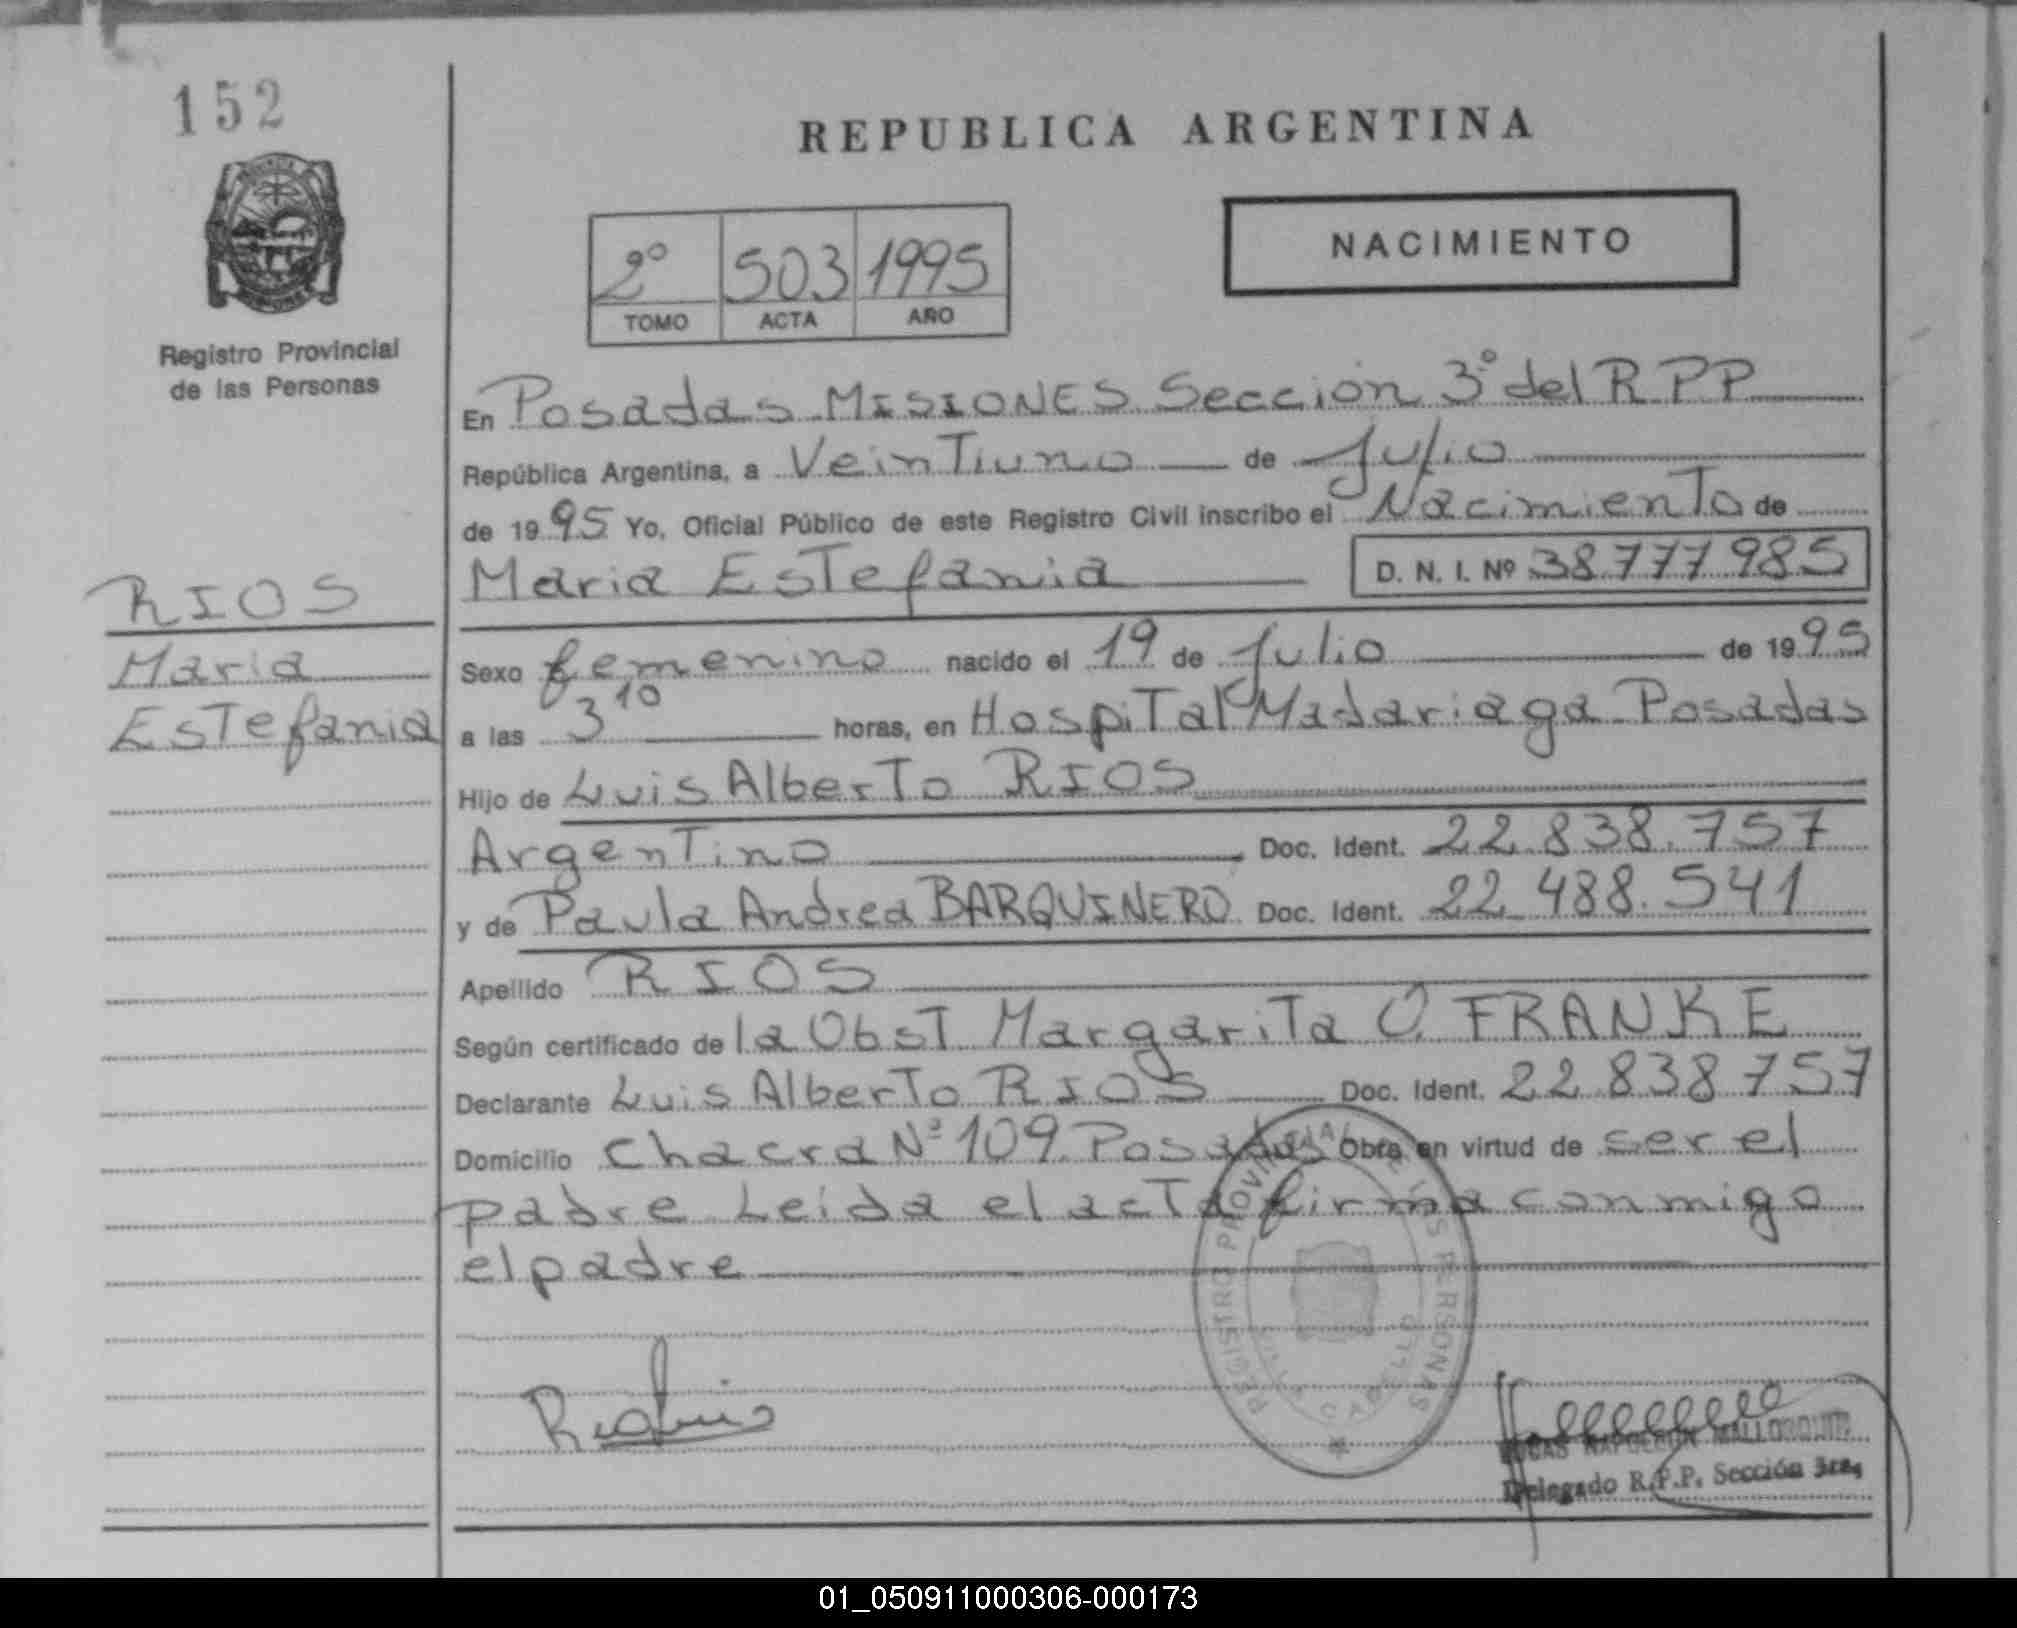 152
REPUBLICA ARGENTINA
NACIMIENTO
2º 503 1995
TOMO ACTA AÑO
Registro Provincial
de las Personas
En Posadas MISIONES Sección 3º del R.P.P
República Argentina, a VeinTiuno de Julio
de 1995 Yo, Oficial Público de este Registro Civil inscribo el NacimienTo de
Maria EsTefania D. N. I. Nº 38.777.985
RIOS
Maria
EsTefania
Sexo femenino nacido el 19 de Julio de 1995
a las 3 10 horas, en HospiTal Madariaga Posadas
Hijo de Luis AlberTo RIOS
ArgenTino Doc. Ident. 22.838.757
y de Paula Andrea BARQUINERO Doc. Ident. 22.488.541
Apellido RIOS
Según certificado de la ObsT MargariTa O. FRANKE
Declarante Luis AlberTo RIOS Doc. Ident. 22.838.757
Domicilio Chacra Nº 109 Posadas Obra en virtud de ser el
padre Leida el acTa firma conmigo
el padre
REGISTRO PROVINCIAL DE LAS PERSONAS
VILLA CABELLO
LUCAS NAPOLEON MALLORQUIN
Delegado R.P.P. Sección 3ra.
01_050911000306-000173